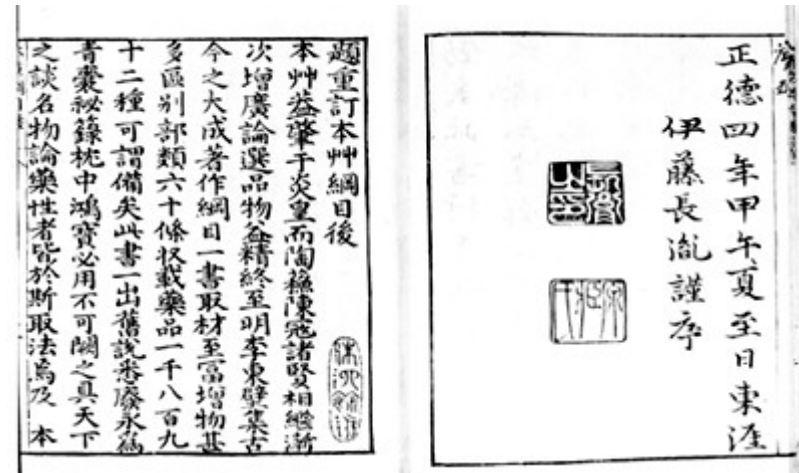 正德四年甲午夏至日東涯
伊藤長胤謹序
題重訂本艸綱目後
本艸葢肇于炎皇而陶蘇陳寇諸賢相繼漸
次增廣論選品物益精終至明李東璧集古
今之大成著作綱目一書取材至富增物甚
多區别部類六十條收載藥品一千八百九
十二種可謂備矣此書一出舊說悉廢永爲
青囊秘籙枕中鴻寶必用不可闕之具天下
之談名物論藥性者皆於斯取法焉及 本